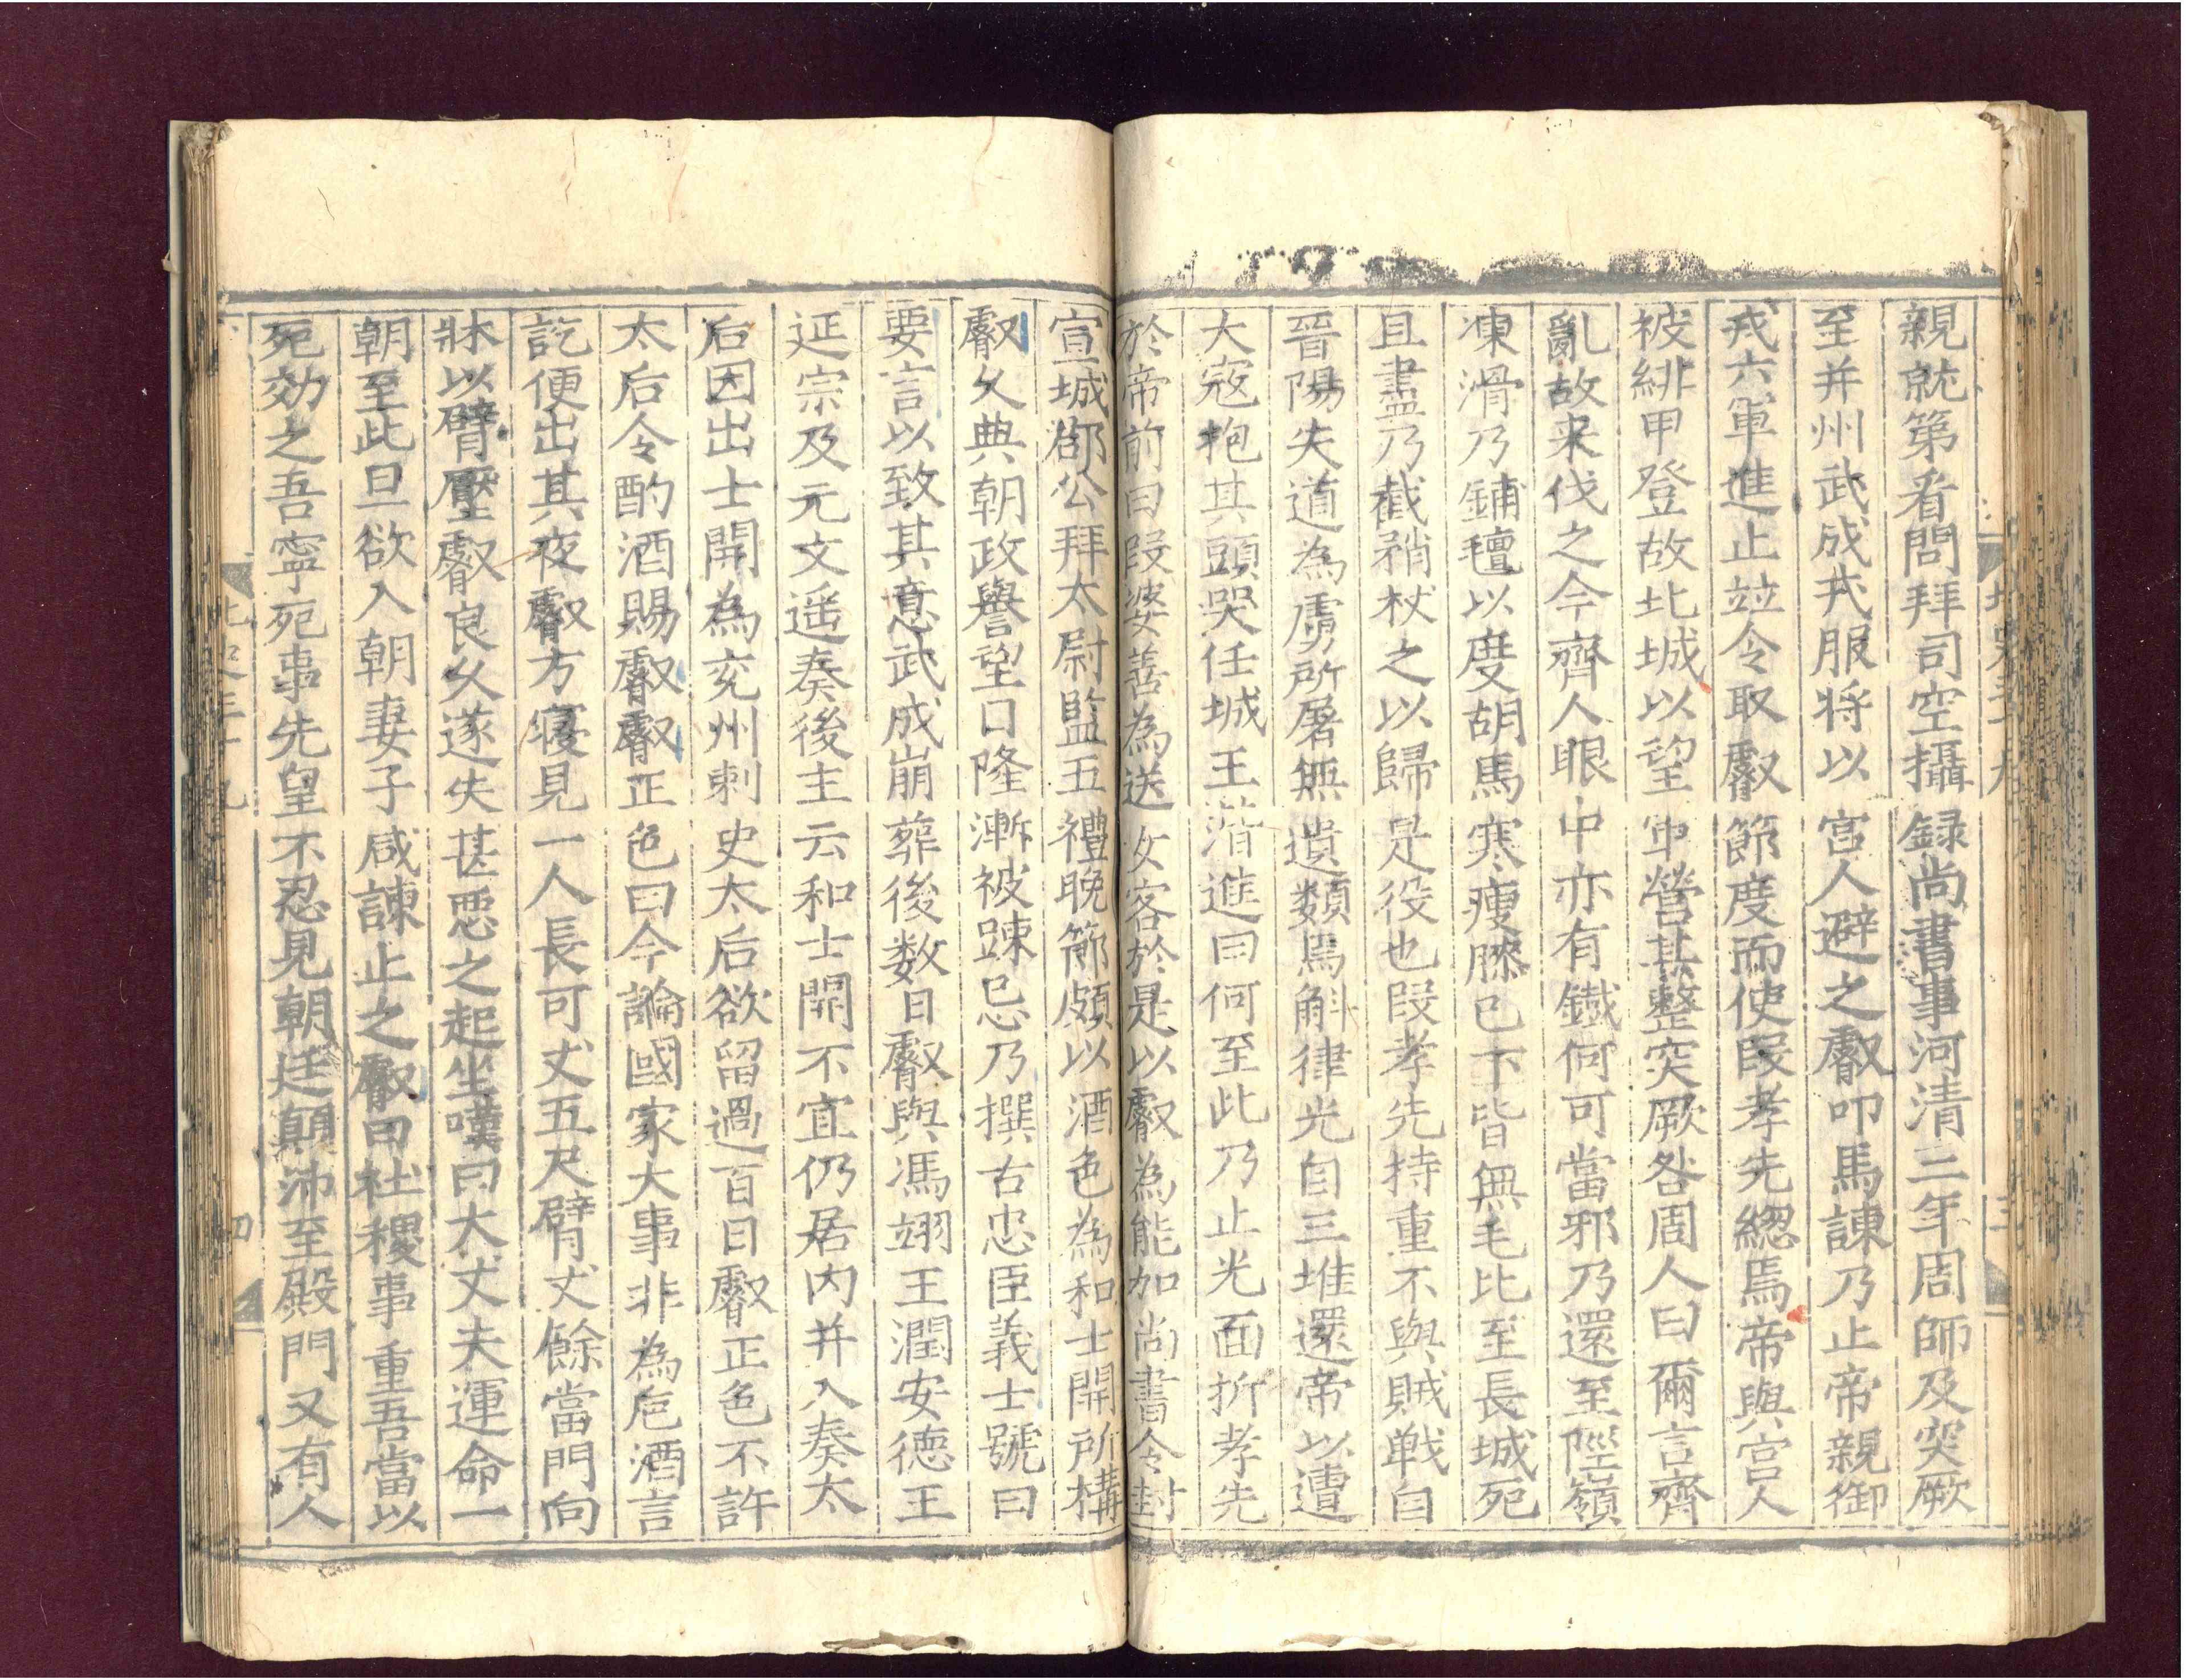 親就第看問拜司空攝録尚書事河清三年周師及突厥
至并州武成戎服將以宫人避之叡叩馬諫乃止帝親御
戎六軍進止竝令取叡節度而使段孝先緫焉帝與宫人
被緋甲登故北城以望軍營甚整突厥咎周人曰爾言齊
亂故来伐之今齊人眼中亦有鐵何可當邪乃還至陘嶺
凍滑乃鋪氊以度胡馬寒瘦膝已下皆無毛比至長城死
且盡乃截矟杖之以歸是役也段孝先持重不與賊戰自
晉陽失道為虜所屠無遺類焉斛律光自三堆還帝以遭
大寇抱其頭哭任城王湝進曰何至此乃止光面折孝先
於帝前曰段婆善為送女客於是以叡為能加尚書令封
宣城郡公拜太尉監五禮晚節頗以酒色為和士開所構
叡久典朝政譽望日隆漸被踈忌乃撰古忠臣義士號曰
要言以致其意武成崩葬後数日叡與馮翊王潤安德王
延宗及元文遥奏後主云和士開不宜仍居内并入奏太
后因出士開為兖州刺史太后欲留過百日叡正色不許
太后令酌酒賜叡叡正色曰今論國家大事非為巵酒言
訖便出其夜叡方寢見一人長可丈五尺臂丈餘當門向
牀以臂壓叡良久遂失甚悪之起坐嘆曰大丈夫運命一
朝至此旦欲入朝妻子咸諫止之叡曰社稷事重吾當以
死効之吾寧死事先皇不忍見朝廷顛沛至殿門又有人
北史五十九
四